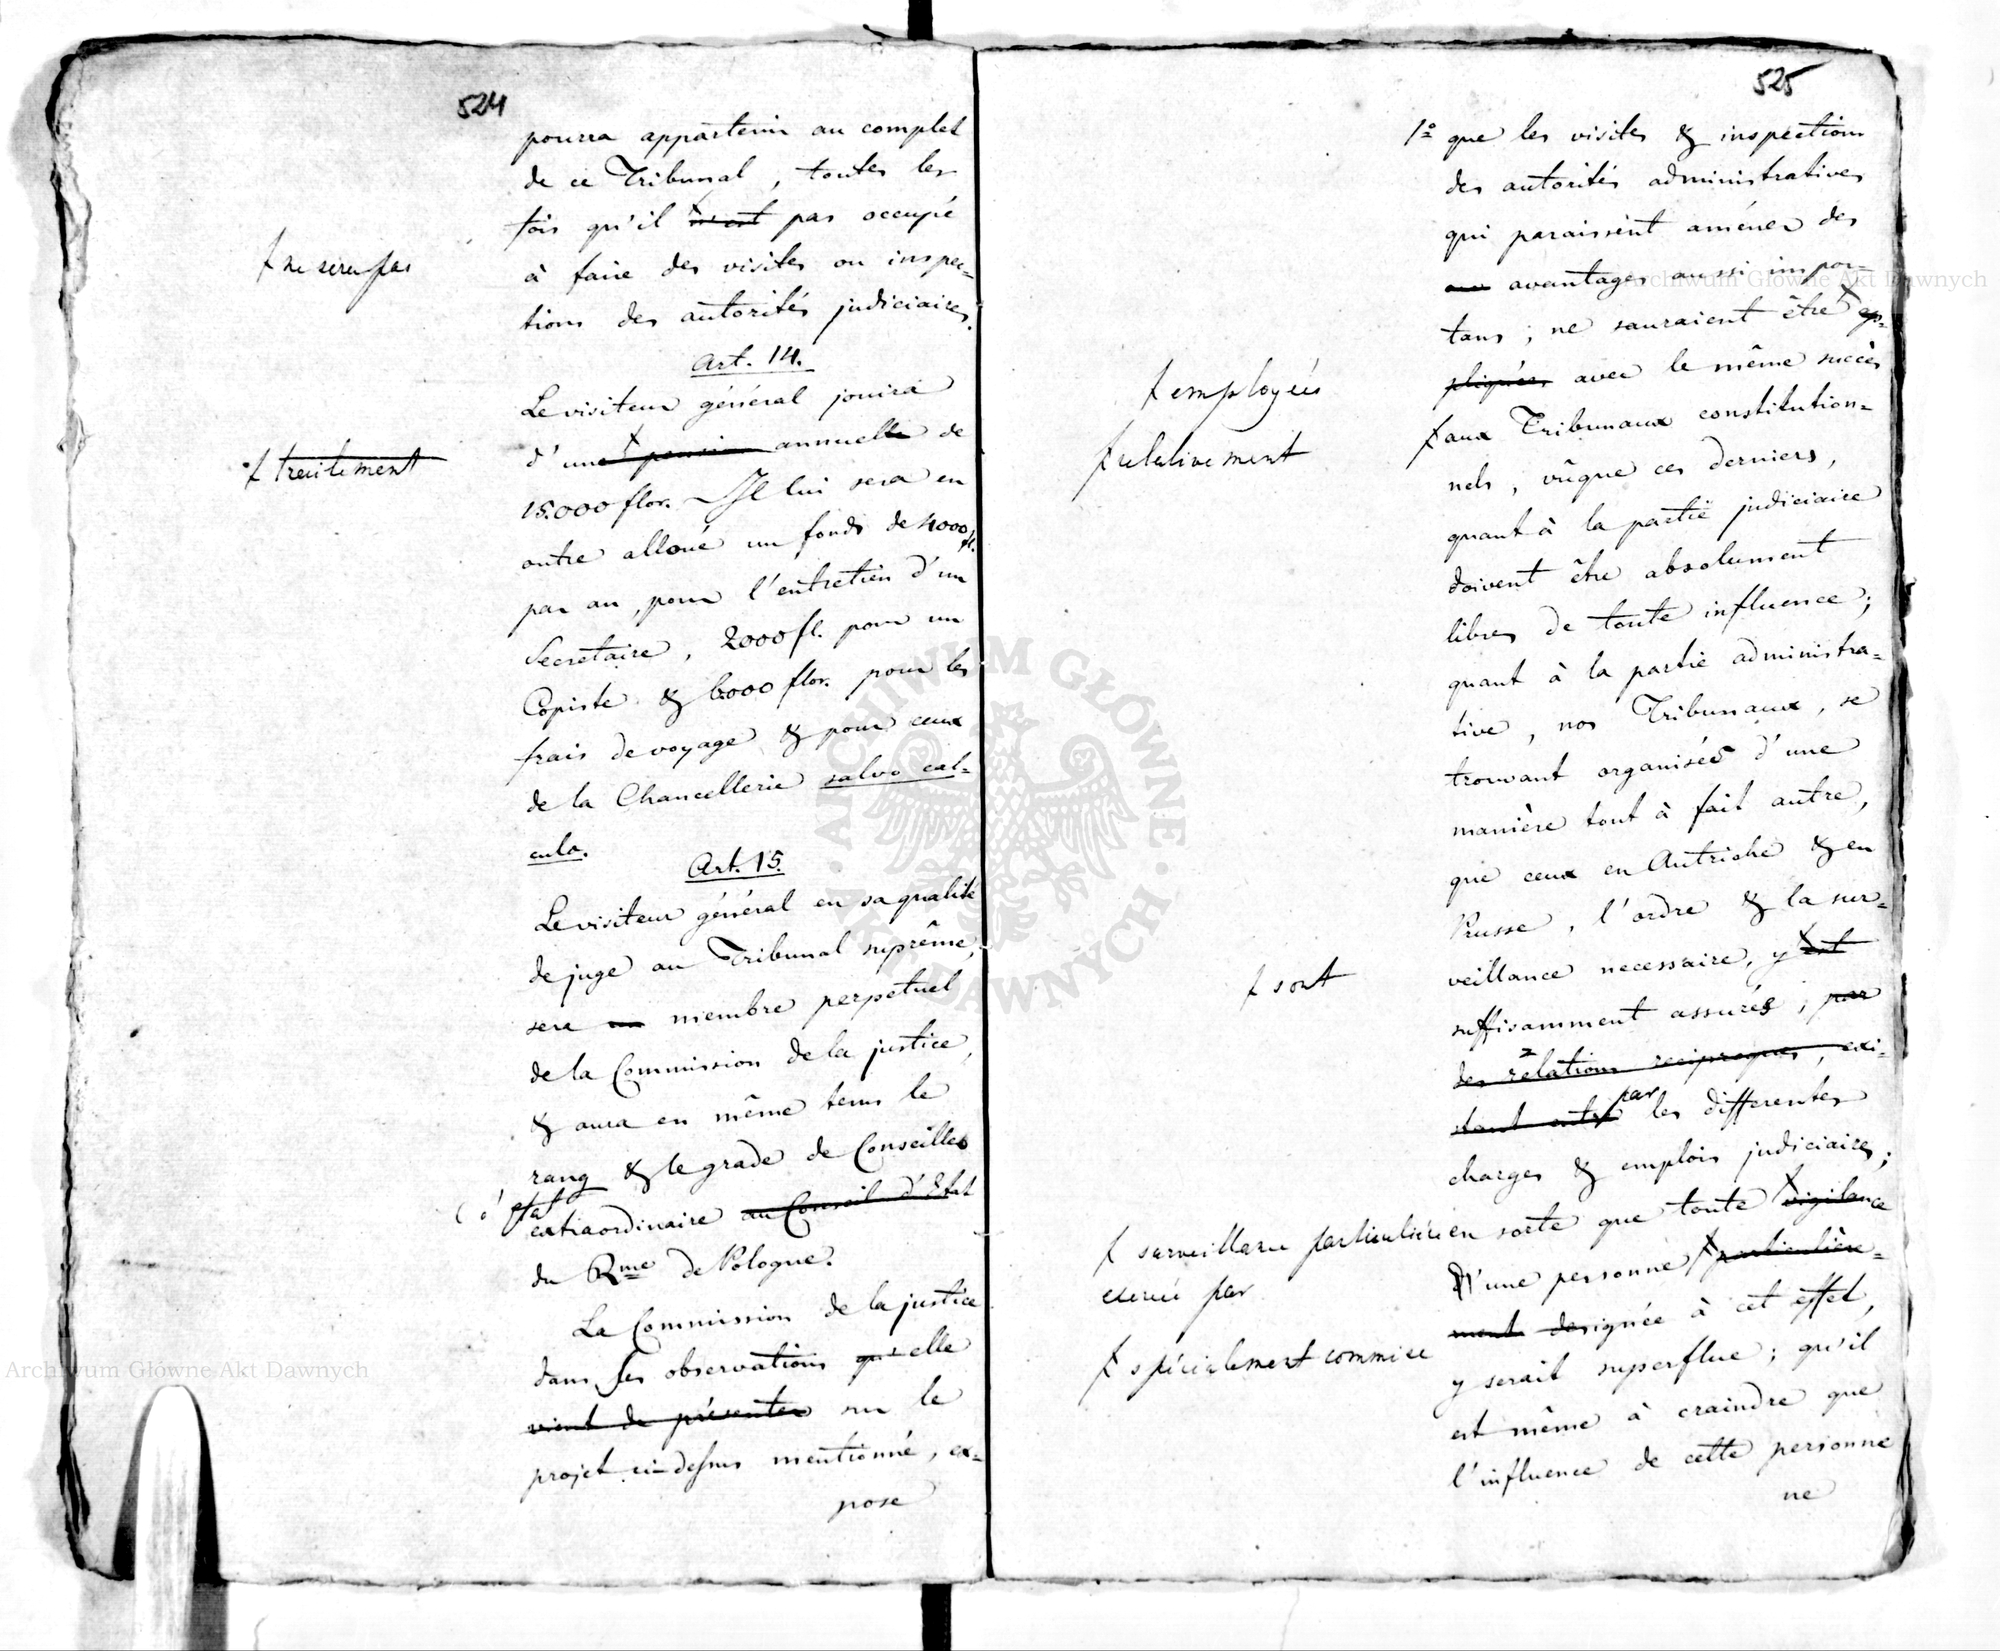 524
pourra appartenir au complet
de ce Tribunal, toutes les
fois qu'il n'est pas occupé
ƚ ne sera pas
à faire des visites ou inspec=
tions des autorités judiciaires.
Art. 14.
Le visiteur général jouira
d'une pension annuelle de
ƚ traitement
15.000 flor. Il lui sera en
outre alloué un fonds de 4000 fl.
par an, pour l'entretien d'un
Secretaire, 2000 fl. pour un
Copiste & 6000 flor. pour les
frais de voyage & pour ceux
de la Chancellerie salvo cal=
culo.
Art. 15.
Le visiteur général en sa qualité
de juge au Tribunal suprême,
sera un membre perpetuel
de la Commission de la justice,
& aura en même tems le
rang & le grade de Conseiller
d'etat
extraordinaire au Conseil d'Etat
du Rme de Pologne.
La Commission de la justice
dans ses observations qu'elle
vient de présenter sur le
projet ci-dessus mentionné, ex=
pose
525
1º que les visites & inspections
des autorités administratives
qui paraissent améner des
avantages aussi impor=
tans; ne sauraient être ap=
pliquées avec le même succès
ƚ employées
ƚ aux Tribunaux constitution=
ƚ relativement
nels, vûque ces derniers,
quant à la partie judiciaire
doivent être absolument
libres de toute influence;
quant à la partie administra=
tive, nos Tribunaux, se
trouvant organisés d'une
manière tout à fait autre,
que ceux en Autriche & en
Prusse, l'ordre & la sur=
veillance necessaire, y est
ƚ sont
suffisamment assurés; par
des rélations reciproques, exi=
stant entre par les différentes
charges & emplois judiciaires;
en sorte que toute vigilance
ƚ surveillance particulière
exercée par
d'une personne particulière=
ment designée à cet effet,
ƚ spécialement commise
y serait superflue; qu'il
est même à craindre que
l'influence de cette personne
ne
Archiwum Główne Akt Dawnych
Archiwum Główne Akt Dawnych
ARCHIWUM GŁÓWNE AKT DAWNYCH